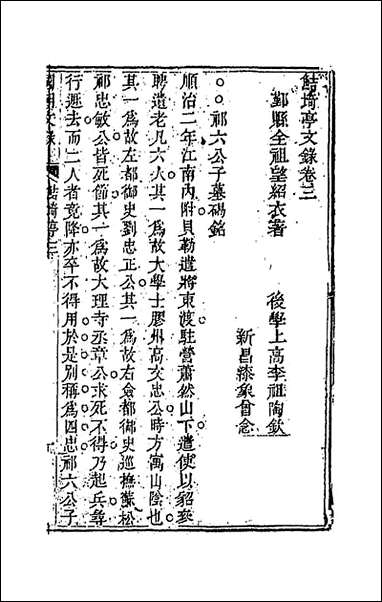 鮚埼亭文錄卷三
鄞縣全祖望紹衣著
後學上高李祖陶欽
新昌漆象曾念
○○祁六公子墓碣銘
順治二年江南內附貝勒遣將東渡駐營蕭然山下遣使以貂裘
聘遺老凡六人其一爲故大學士膠州高文忠公時方寓山陰也
其一爲故左都御史劉忠正公其一爲故右僉都御史巡撫蘇松
祁忠敏公皆死節其一爲故大理寺丞章公求死不得乃起兵尋
行遯去而二人者竟降亦卒不得用於是別稱爲四忠祁六公子
國朝文錄 鮚埼亭三